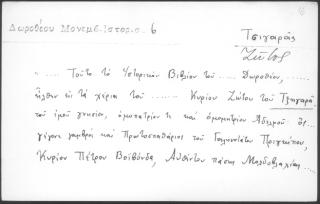 Δωροθέου Μονεμβ. Ιστορ. σ. 6
Τσιγαρᾶς
Ζώτος
".... Τοῦτο τὸ Ἱστορικὸν Βιβλίον τοῦ .... Δωροθέου,
ἦλθεν εἰς τὰ χέρια τοῦ ........ Κυρίου Ζώτου τοῦ Τζηγαρᾶ
τοῦ ἐμοῦ γνησίου, ὁμοπατρίου τε καὶ ὁμομητρίου Ἀδελφοῦ. Ὅς
γέγονε γαμβρὸς καὶ Πρωτοσπαθάριος τοῦ Πρίγκιπος,
Κυρίου Πέτρου Βοϊβόνδα, Αὐθέντου πάσης Μολδοβλαχίας ...